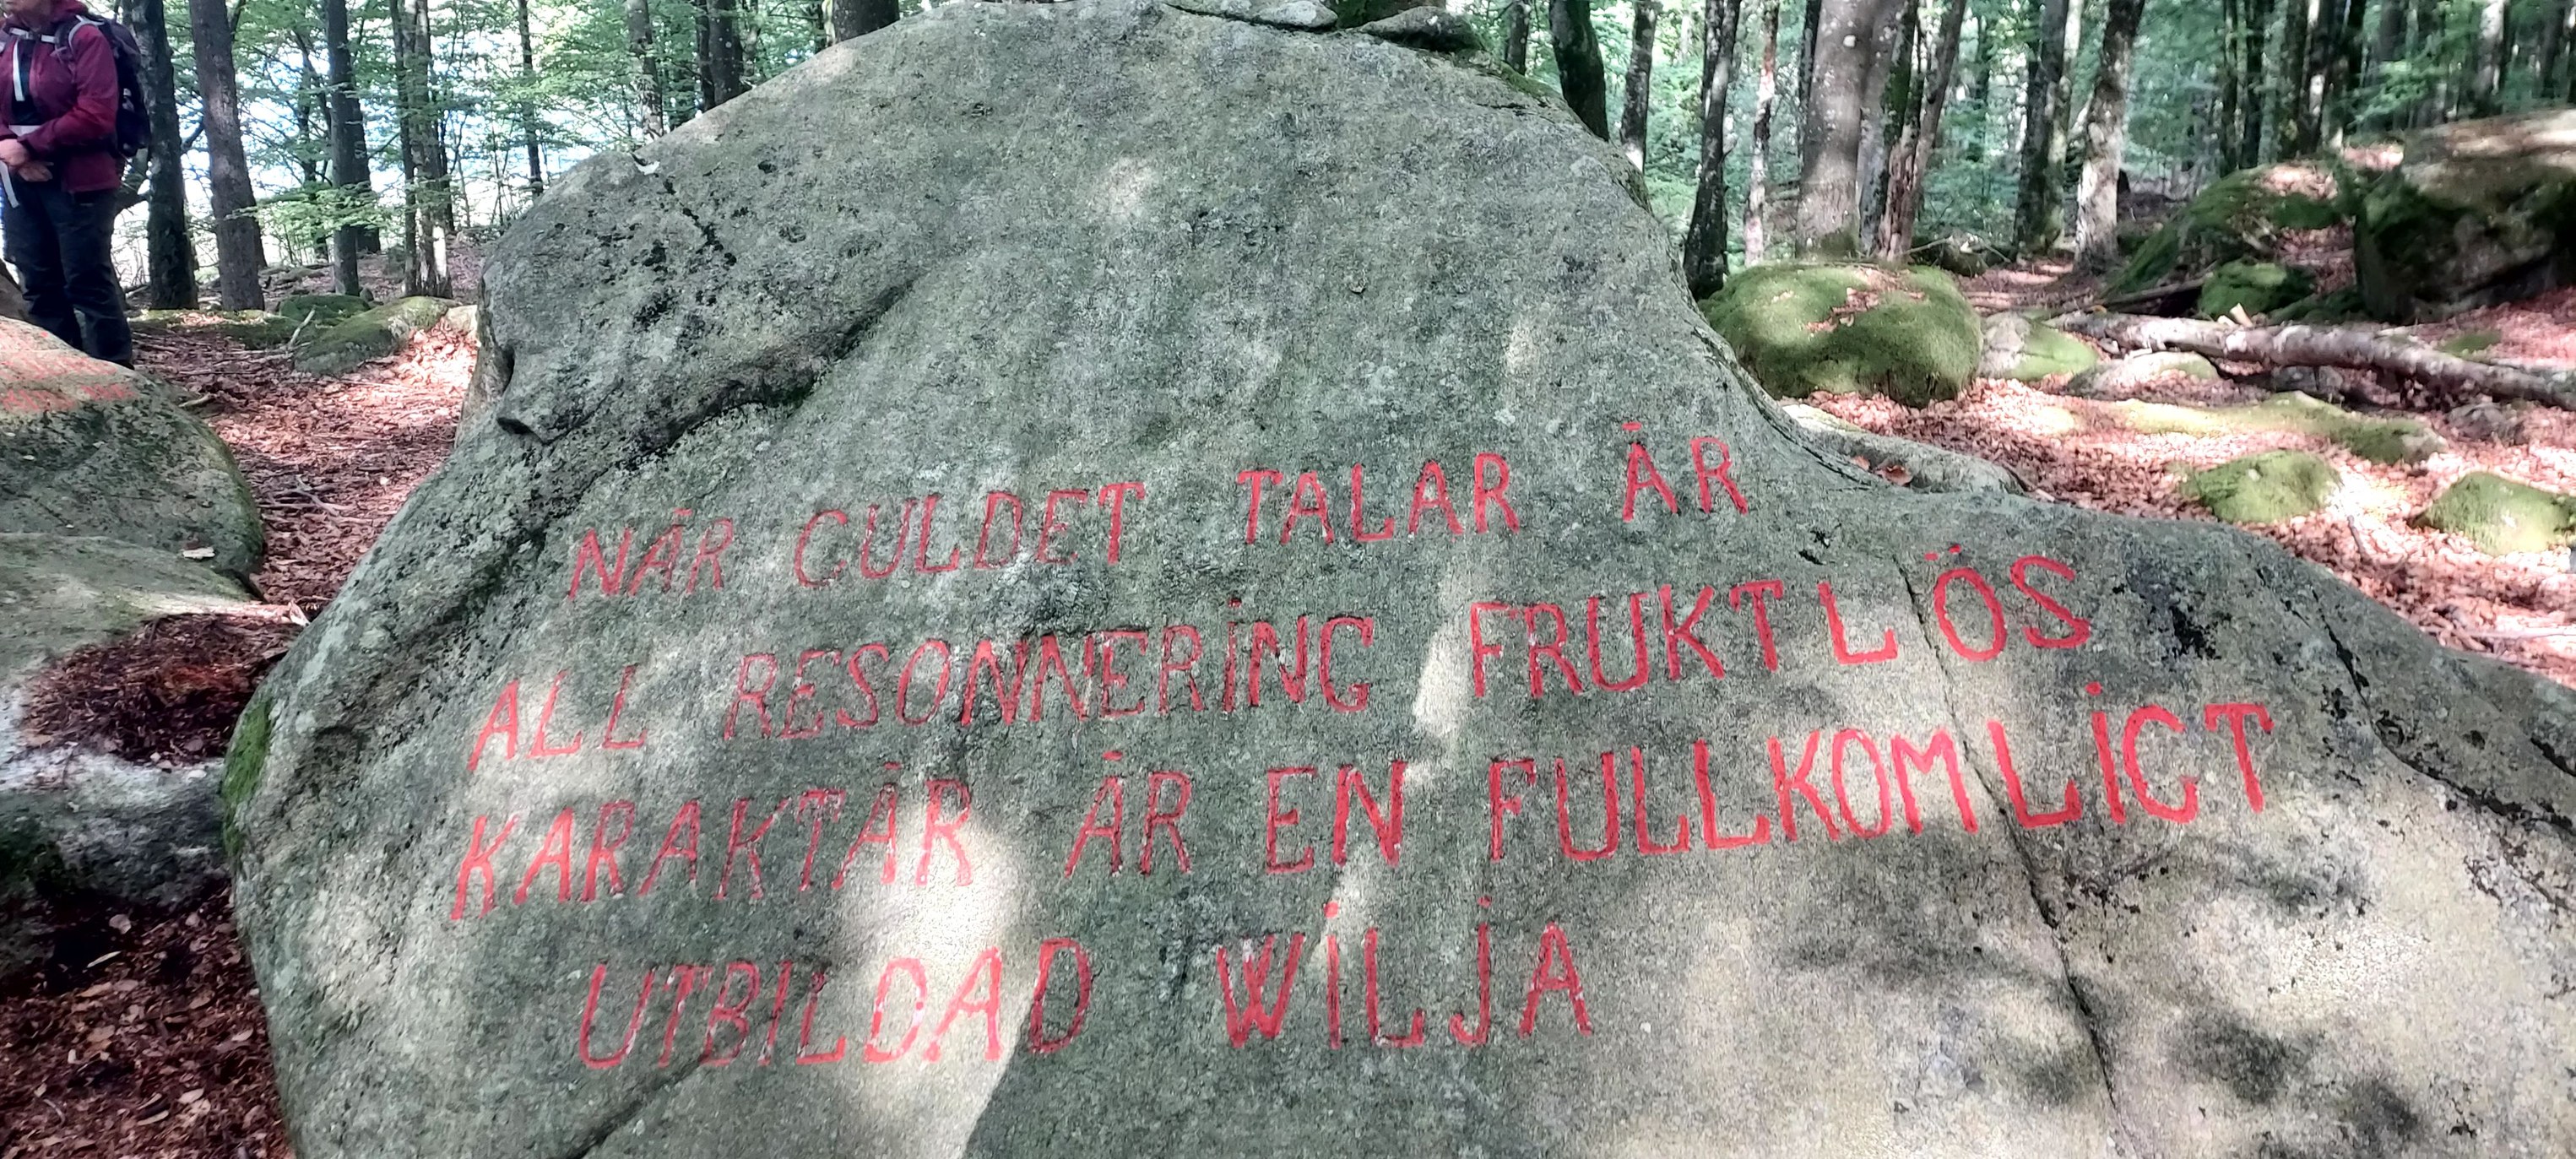 NÄR GULDET TALAR ÄR
ALL RESONNERING FRUKTLÖS
KARAKTÄR ÄR EN FULLKOMLIGT
UTBILDAD WILJA